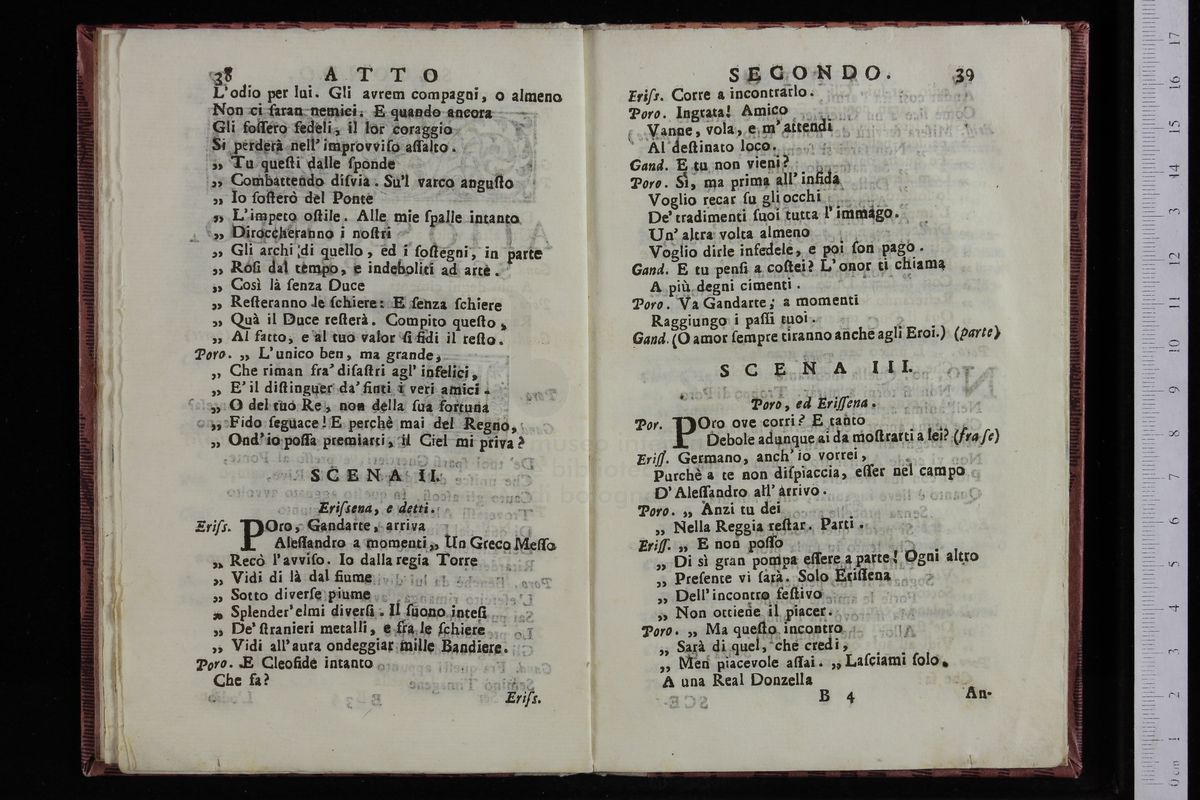 38 ATTO
L'odio per lui. Gli avrem compagni, o almeno
Non ci faran nemici. E quando ancora
Gli foſſero fedeli, il lor coraggio
Si perderà nell' improvviſo aſſalto.
„ Tu queſti dalle ſponde
„ Combattendo diſvia. Su'l varco anguſto
„ Io ſoſterò del Ponte
„ L'impeto oſtile. Alle mie ſpalle intanto
„ Diroccheranno i noſtri
„ Gli archi di quello, ed i ſoſtegni, in parte
„ Roſi dal tempo, e indeboliti ad arte.
„ Così là ſenza Duce
„ Reſteranno le ſchiere: E ſenza ſchiere
„ Quà il Duce reſterà. Compito queſto,
„ Al fatto, e al tuo valor ſi fidi il reſto.
Poro. „ L'unico ben, ma grande,
„ Che riman fra' diſaſtri agl' infelici,
„ E' il diſtinguer da' finti i veri amici.
„ O del tuo Re, non della ſua fortuna
„ Fido ſeguace! E perchè mai del Regno,
„ Ond' io poſſa premiarti, il Ciel mi priva?
SCENA II.
Eriſsena, e detti.
Eriſs. POro, Gandarte, arriva
Aleſſandro a momenti „ Un Greco Meſſo
„ Recò l'avviſo. Io dalla regia Torre
„ Vidi di là dal fiume
„ Sotto diverſe piume
„ Splender' elmi diverſi. Il ſuono inteſi
„ De' ſtranieri metalli, e fra le ſchiere
„ Vidi all'aura ondeggiar mille Bandiere.
Poro. E Cleofide intanto
Che fa?
Eriſs.
SECONDO. 39
Eriſs. Corre a incontrarlo.
Poro. Ingrata! Amico
Vanne, vola, e m'attendi
Al deſtinato loco.
Gand. E tu non vieni?
Poro. Sì, ma prima all' infida
Voglio recar ſu gli occhi
De' tradimenti ſuoi tutta l'immago.
Un' altra volta almeno
Voglio dirle infedele, e poi ſon pago.
Gand. E tu penſi a coſtei? L'onor ti chiama
A più degni cimenti.
Poro. Va Gandarte; a momenti
Raggiungo i paſſi tuoi.
Gand. (O amor ſempre tiranno anche agli Eroi.) (parte)
SCENA III.
Poro, ed Eriſſena.
Por. POro ove corri? E tanto
Debole adunque ai da moſtrarti a lei? (fra ſe)
Eriſſ. Germano, anch' io vorrei,
Purchè a te non diſpiaccia, eſſer nel campo
D' Aleſſandro all' arrivo.
Poro. „ Anzi tu dei
„ Nella Reggia reſtar. Parti.
Eriſſ. „ E non poſſo
„ Di sì gran pompa eſſere a parte! Ogni altro
„ Preſente vi ſarà. Solo Eriſſena
„ Dell' incontro feſtivo
„ Non ottiene il piacer.
Poro. „ Ma queſto incontro
„ Sarà di quel, che credi,
„ Men piacevole aſſai. „ Laſciami ſolo.
A una Real Donzella
B 4 An-